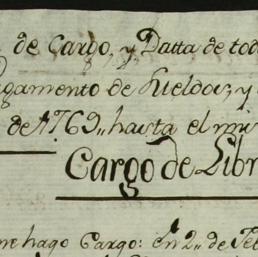 de Cargo, y Datta de tod
agamento de Sueldos, y
de 1769,, hasta el mis
Cargo de Libr
me hago Cargo: en 2,, de Fe